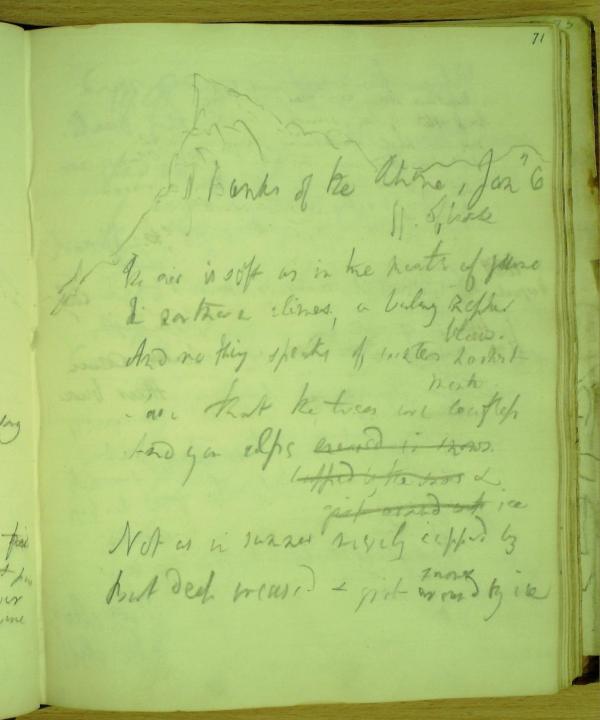 71
banks of the Rhine, Jan 6
The air is soft as in the month of June
In northern climes, a balmy Zephyr
blows.
And nothing speaks of winters harshest
month
that the trees are leafless
And yon alps
capped by the snows &
girt around with ice
Not as in summer merely capped by
snow
But deep encased & girt around by ice